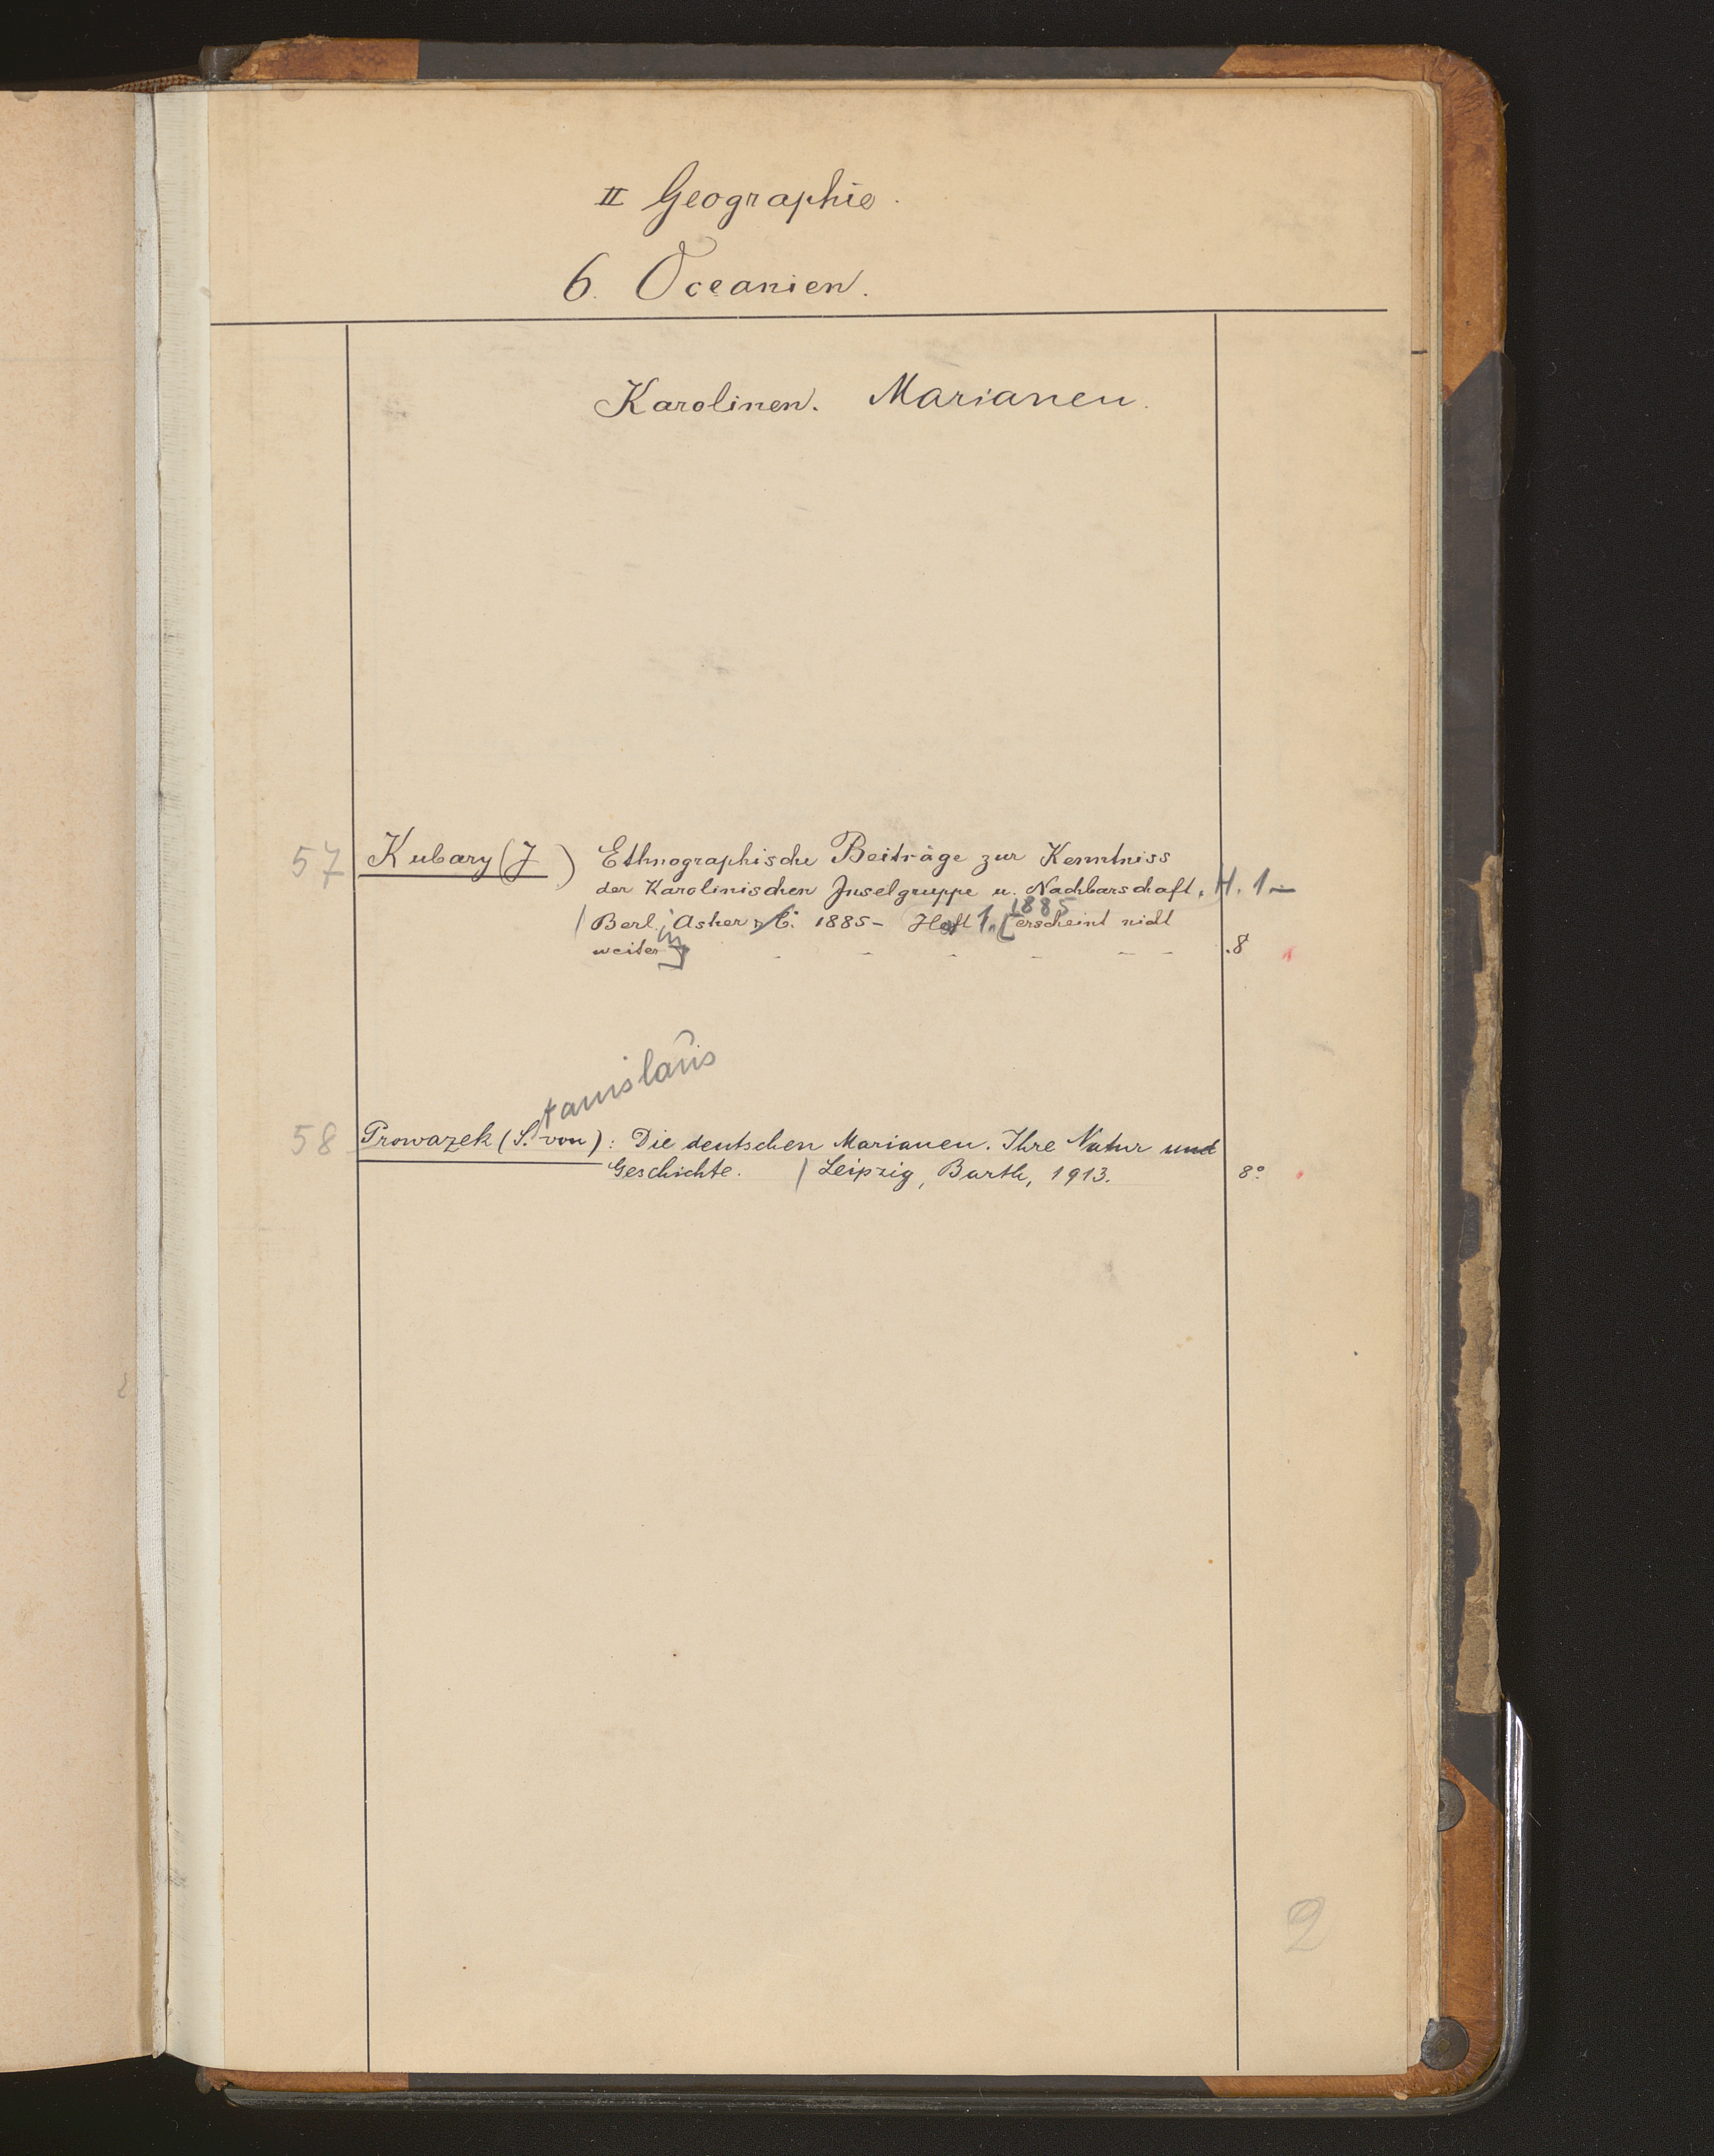 II Geographie.
6. Oceanien.
Karolinen. Marianen.
57 Kubary (J ) Ethnographische Beiträge zur Kenntniss
der Karolinischen Inselgruppe u. Nachbarschaft. H. 1 –
1885
/ Berl., Asher & C. 1885 – Heft 1. [erscheint nicht
weiter] - - - - - - 8
tanislaus
58 Prowazek (S. von): Die deutschen Marianen. Ihre Natur und
Geschichte. / Leipzig, Barth, 1913. 8°.
2